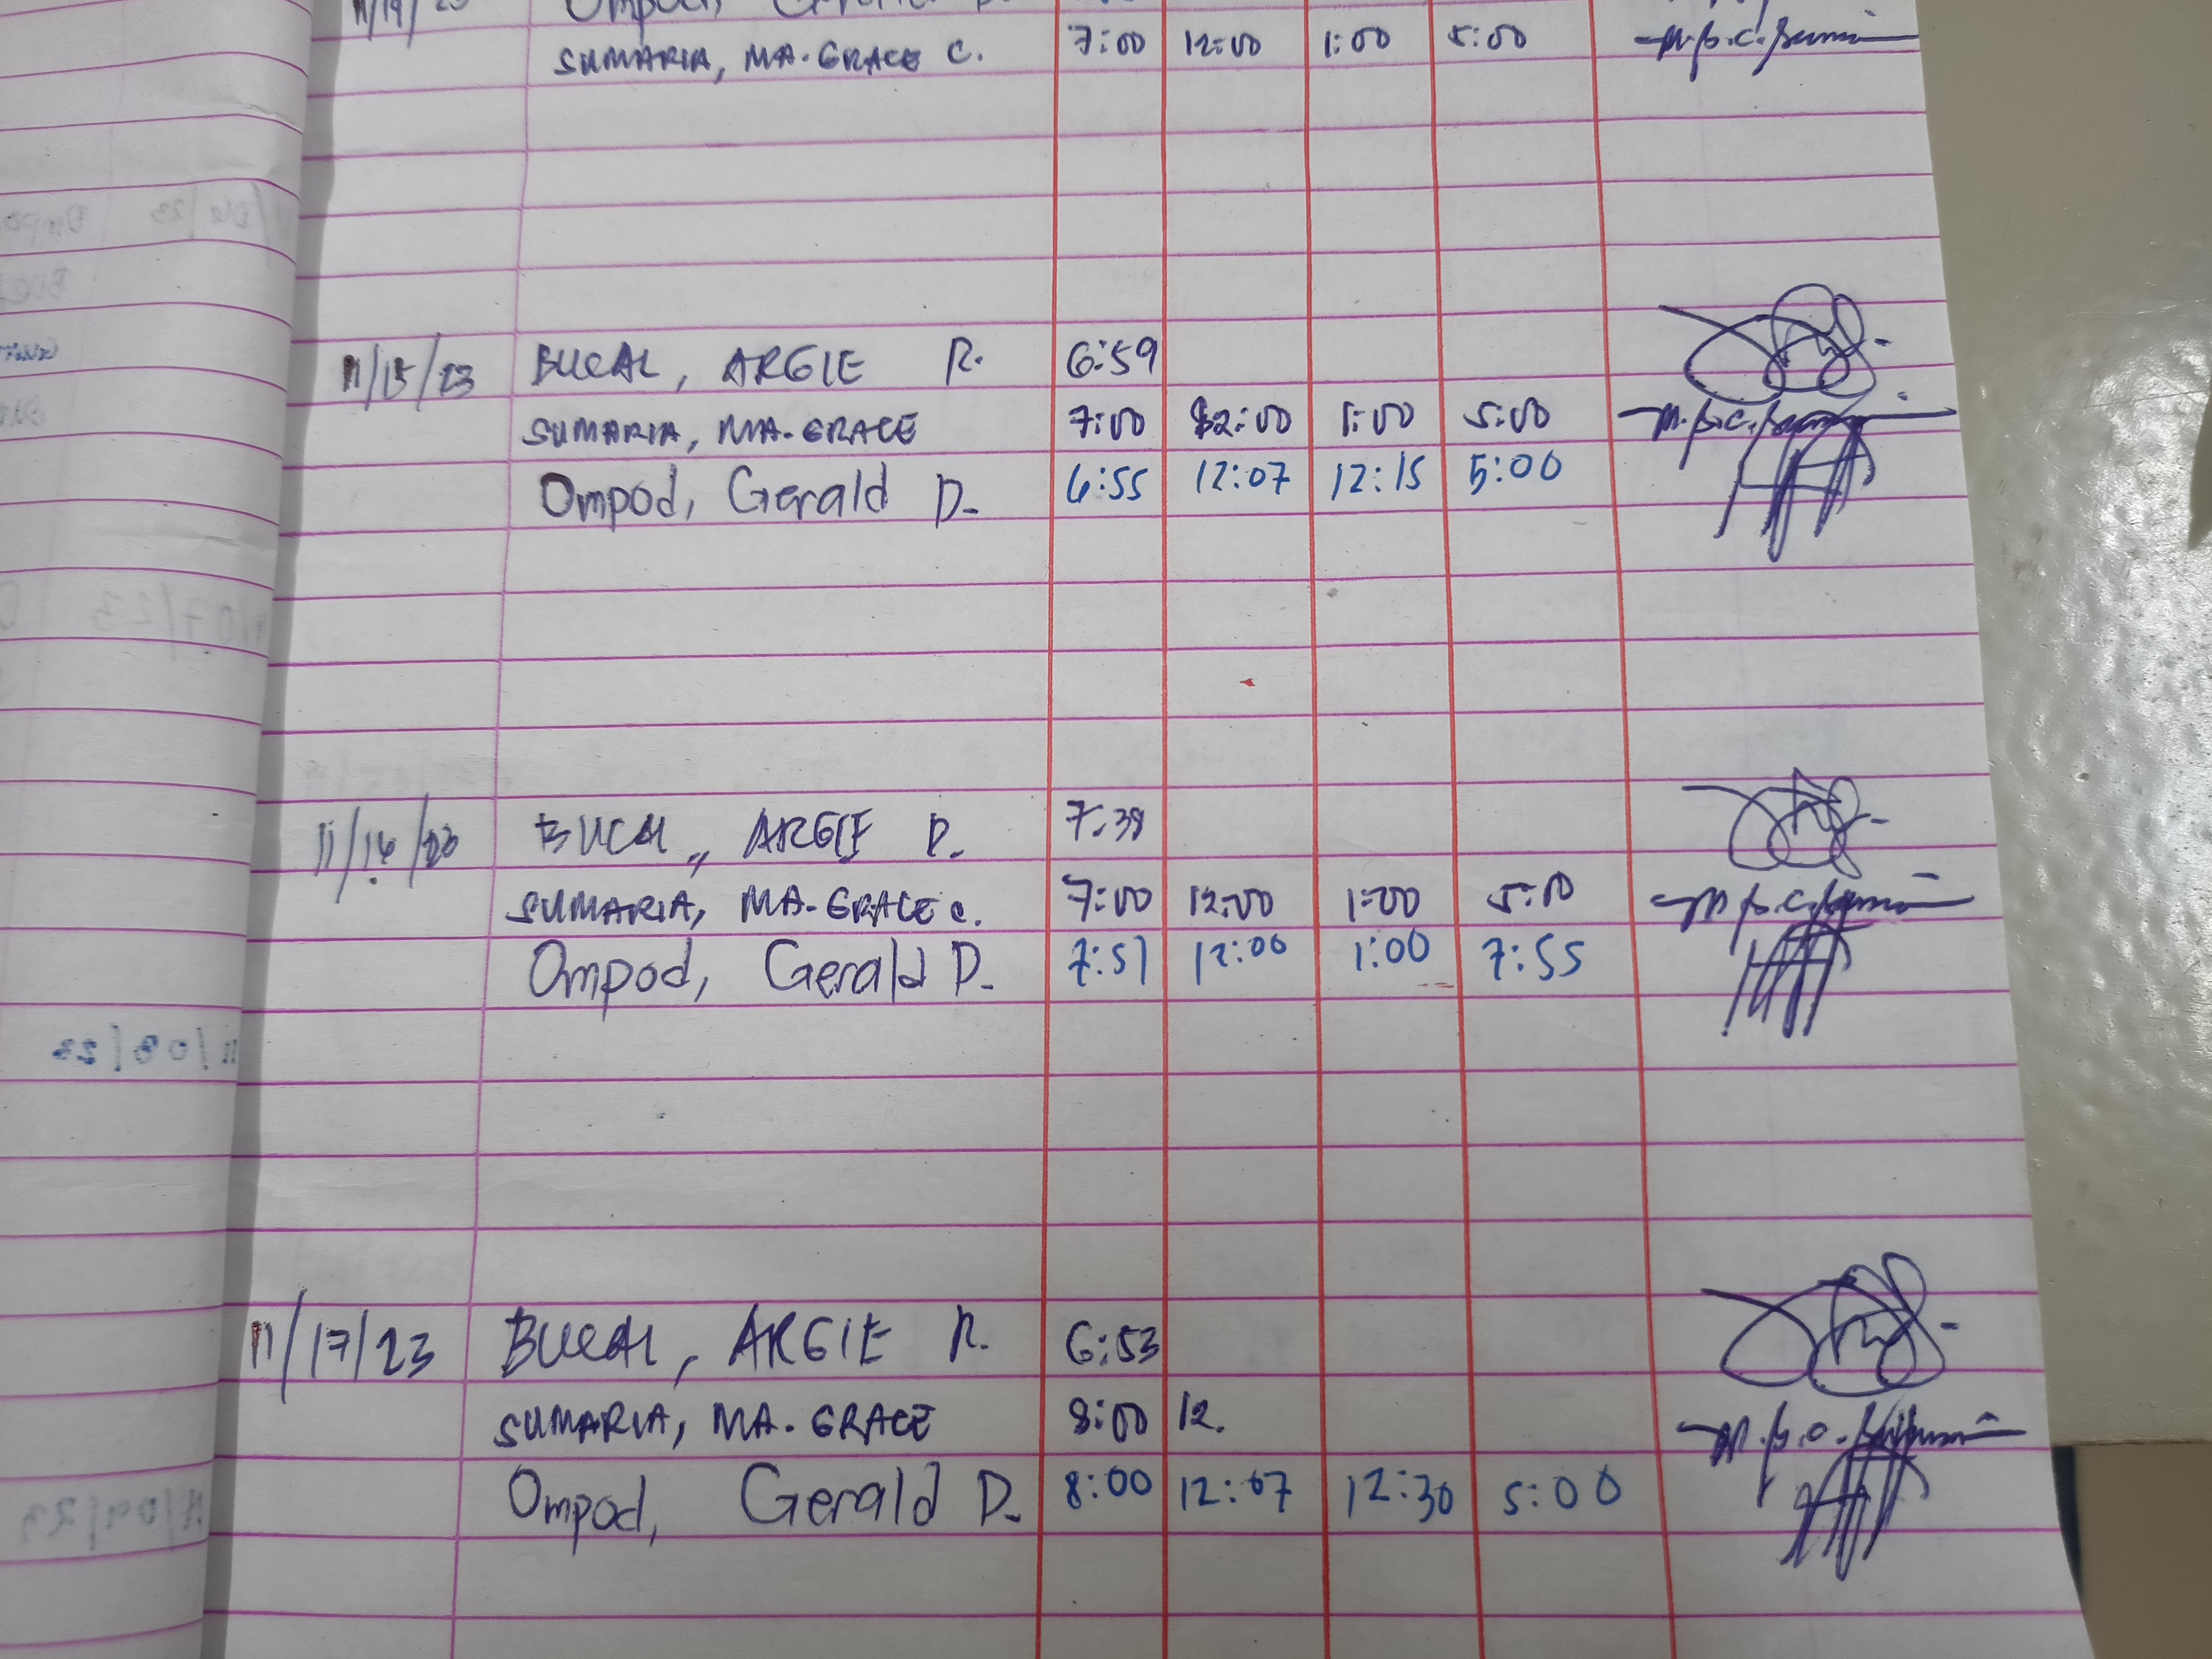 11/14/23 Ompod, Gerald D.
SUMARIA, MA. GRACE C. 7:00 12:00 1:00 5:00
11/15/23 BUCAL, ARGIE R. 6:59
SUMARIA, MA. GRACE 7:00 12:00 1:00 5:00
Ompod, Gerald D. 6:55 12:07 12:15 5:00
11/16/23 BUCAL, ARGIE R. 7:38
SUMARIA, MA. GRACE C. 7:00 12:00 1:00 5:00
Ompod, Gerald D. 7:51 12:00 1:00 7:55
11/17/23 BUCAL, ARGIE R. 6:53
SUMARIA, MA. GRACE 8:00 12.
Ompod, Gerald D. 8:00 12:07 12:30 5:00